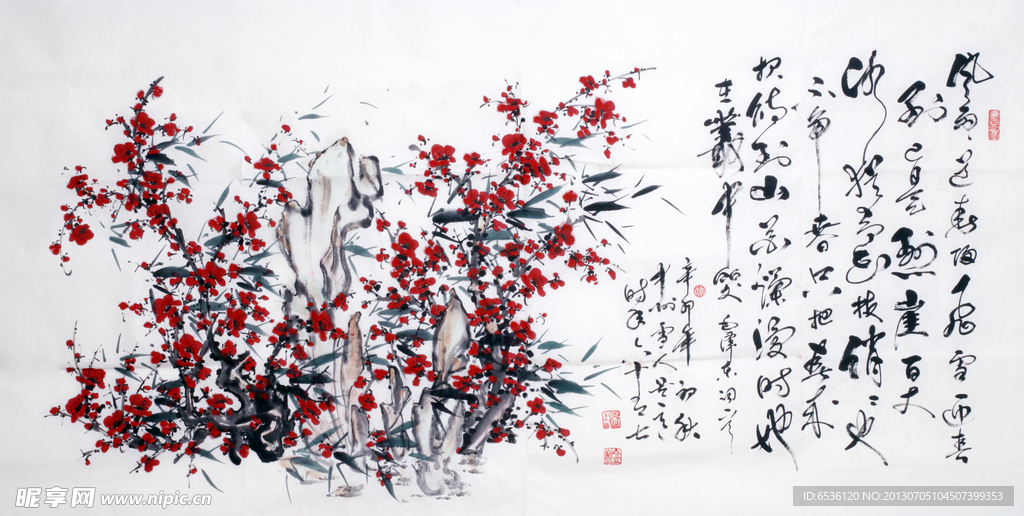 風雨送春归飛雪迎春
到已是悬崖百丈
冰犹有花枝俏俏也
不争春只把春来
报待到山花爛漫时她
在叢中笑 毛澤东词
辛卯年初秋
雪人
时年六十有七
昵享网 www.nipic.cn
ID:6536120 NO:20130705104507399353